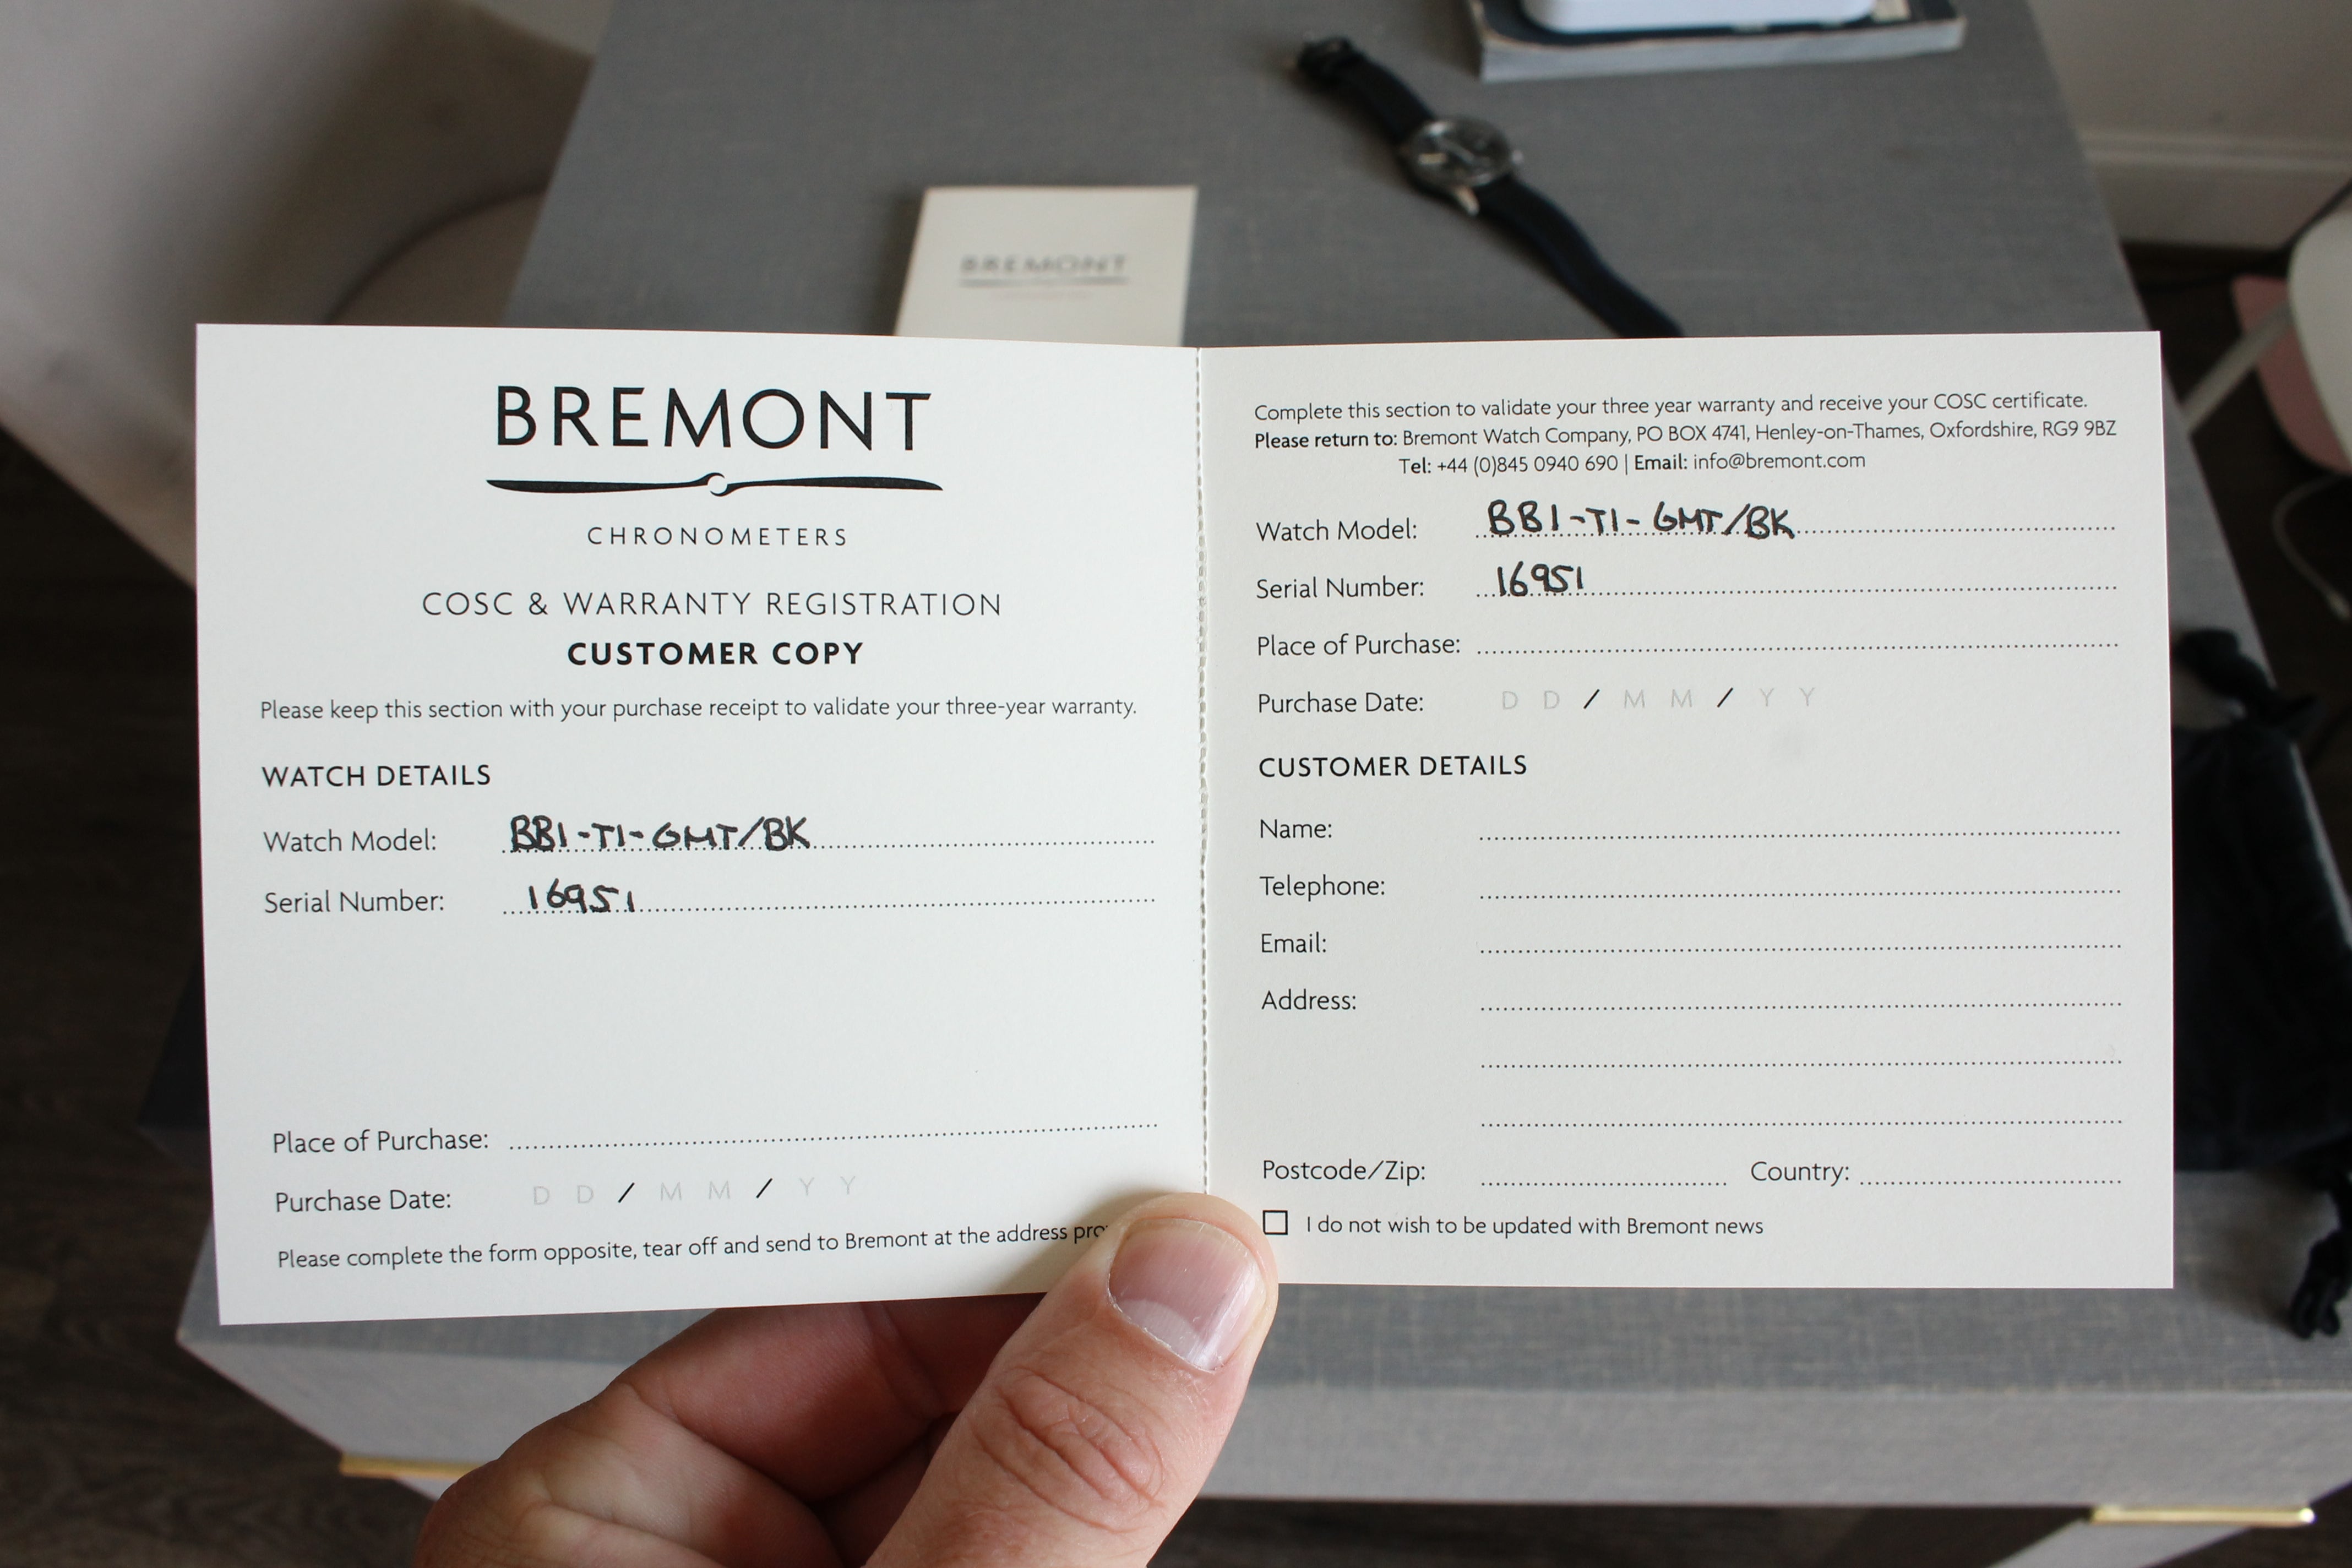 BREMONT
BREMONT
CHRONOMETERS
COSC & WARRANTY REGISTRATION
CUSTOMER COPY
Please keep this section with your purchase receipt to validate your three-year warranty.
WATCH DETAILS
Watch Model: BB1-TI-GMT/BK
Serial Number: 16951
Place of Purchase:
Purchase Date: D D / M M / Y Y
Please complete the form opposite, tear off and send to Bremont at the address
Complete this section to validate your three year warranty and receive your COSC certificate.
Please return to: Bremont Watch Company, PO BOX 4741, Henley-on-Thames, Oxfordshire, RG9 9BZ
Tel: +44 (0)845 0940 690 | Email: info@bremont.com
Watch Model: BB1-TI-GMT/BK
Serial Number: 16951
Place of Purchase:
Purchase Date: D D / M M / Y Y
CUSTOMER DETAILS
Name:
Telephone:
Email:
Address:
Postcode/Zip: Country:
I do not wish to be updated with Bremont news